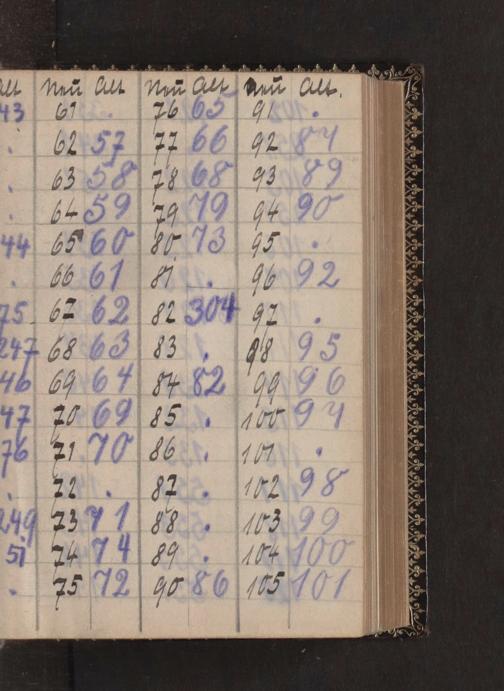 Alt Neu Alt Neu Alt Neu Alt.
43 61 . 76 65 91 .
. 62 57 77 66 92 87
. 63 58 78 68 93 89
. 64 59 79 79 94 90
44 65 60 80 73 95 .
. 66 61 81 . 96 92
75 67 62 82 304 97 .
247 68 63 83 . 98 95
46 69 64 84 82 99 96
47 70 69 85 . 100 94
76 71 70 86 . 101 .
. 72 . 87 . 102 98
249 73 71 88 . 103 99
51 74 74 89 . 104 100
. 75 72 90 86 105 101